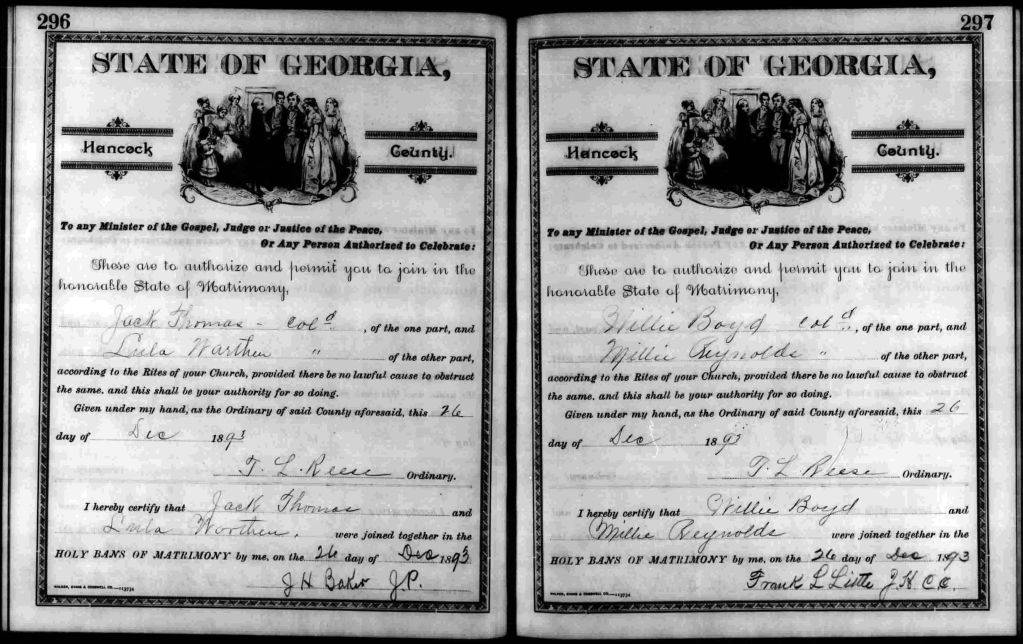 296
STATE OF GEORGIA,
Hancock County.
To any Minister of the Gospel, Judge or Justice of the Peace,
Or Any Person Authorized to Celebrate:
These are to authorize and permit you to join in the
honorable State of Matrimony,
Jack Thomas - Col'd , of the one part, and
Lula Warthen " of the other part,
according to the Rites of your Church, provided there be no lawful cause to obstruct
the same, and this shall be your authority for so doing.
Given under my hand, as the Ordinary of said County aforesaid, this 26
day of Dec 1893
T. L. Reese Ordinary.
I hereby certify that Jack Thomas and
Lula Worthen, were joined together in the
HOLY BANS OF MATRIMONY by me, on the 26 day of Dec 1893
J H Baker J.P.
WALKER, EVANS & COGSWELL CO.—113734
297
STATE OF GEORGIA,
Hancock County.
To any Minister of the Gospel, Judge or Justice of the Peace,
Or Any Person Authorized to Celebrate:
These are to authorize and permit you to join in the
honorable State of Matrimony,
Willie Boyd Col'd , of the one part, and
Millie Reynolds " of the other part,
according to the Rites of your Church, provided there be no lawful cause to obstruct
the same, and this shall be your authority for so doing.
Given under my hand, as the Ordinary of said County aforesaid, this 26
day of Dec 1893
T. L Reese Ordinary.
I hereby certify that Willie Boyd and
Millie Reynolds were joined together in the
HOLY BANS OF MATRIMONY by me, on the 26 day of Dec 1893
Frank L Little J. H C.C.
WALKER, EVANS & COGSWELL CO.—113734